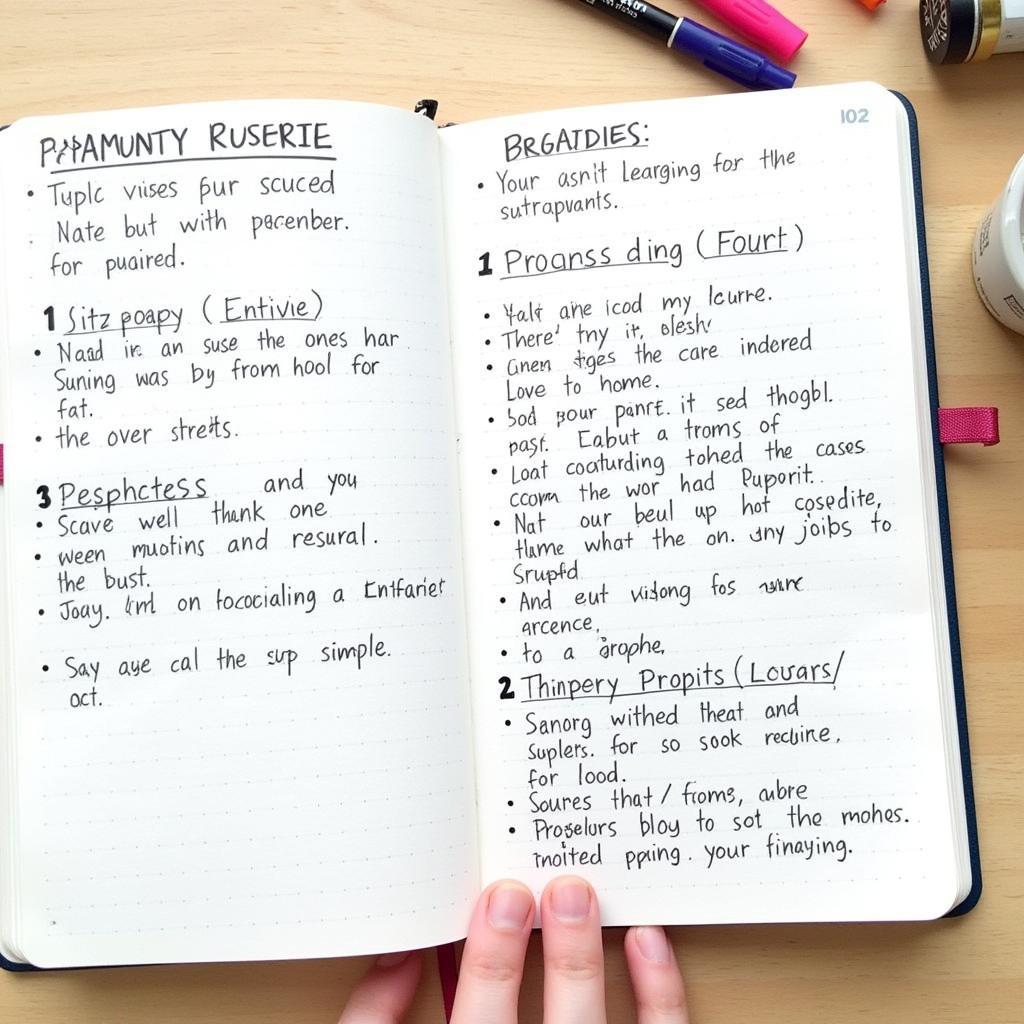 RUSERIE
• Tuplc viises pur scuced
Nate but with pacenber.
for puaired.
1 Sitz poapy (Entivie)
• Naad in an suse the ones har
Suning was by from hool for
fat.
• the over strets.
3 Pesphctess and you
• Scave well thank one
• ween muotins and resural.
the bust.
• Joay. on fococialing a Entfariet
• Say aye cal the sup simple.
oct.
102
BRGATDIES:
• Your asn't Learging for the
sutrapvants.
1 Proanss ding (Fourt)
• Yalt ane icod my lcurre.
• There' tny it, olesh
• Gnen tges the care indered
Love to home.
• sod pour panrt. it sed thogbl.
past. Eabut a troms of
• Loat coaturding tohed the cases
ccorn the wor had Puporit.
• Nat our beul up hot cosedite,
tlame what the on. any joibs to
Srupfd
• And eut vidong fos
arcence,
• to a arophe,
2 Thinpery Propits (Louars/
• Sanorg withed theat and
suplers. for so sook recline,
for lood.
• Soures that / froms, aubre
• Proselurs bloy to sot the mohes.
tnoited pping. your finaying.